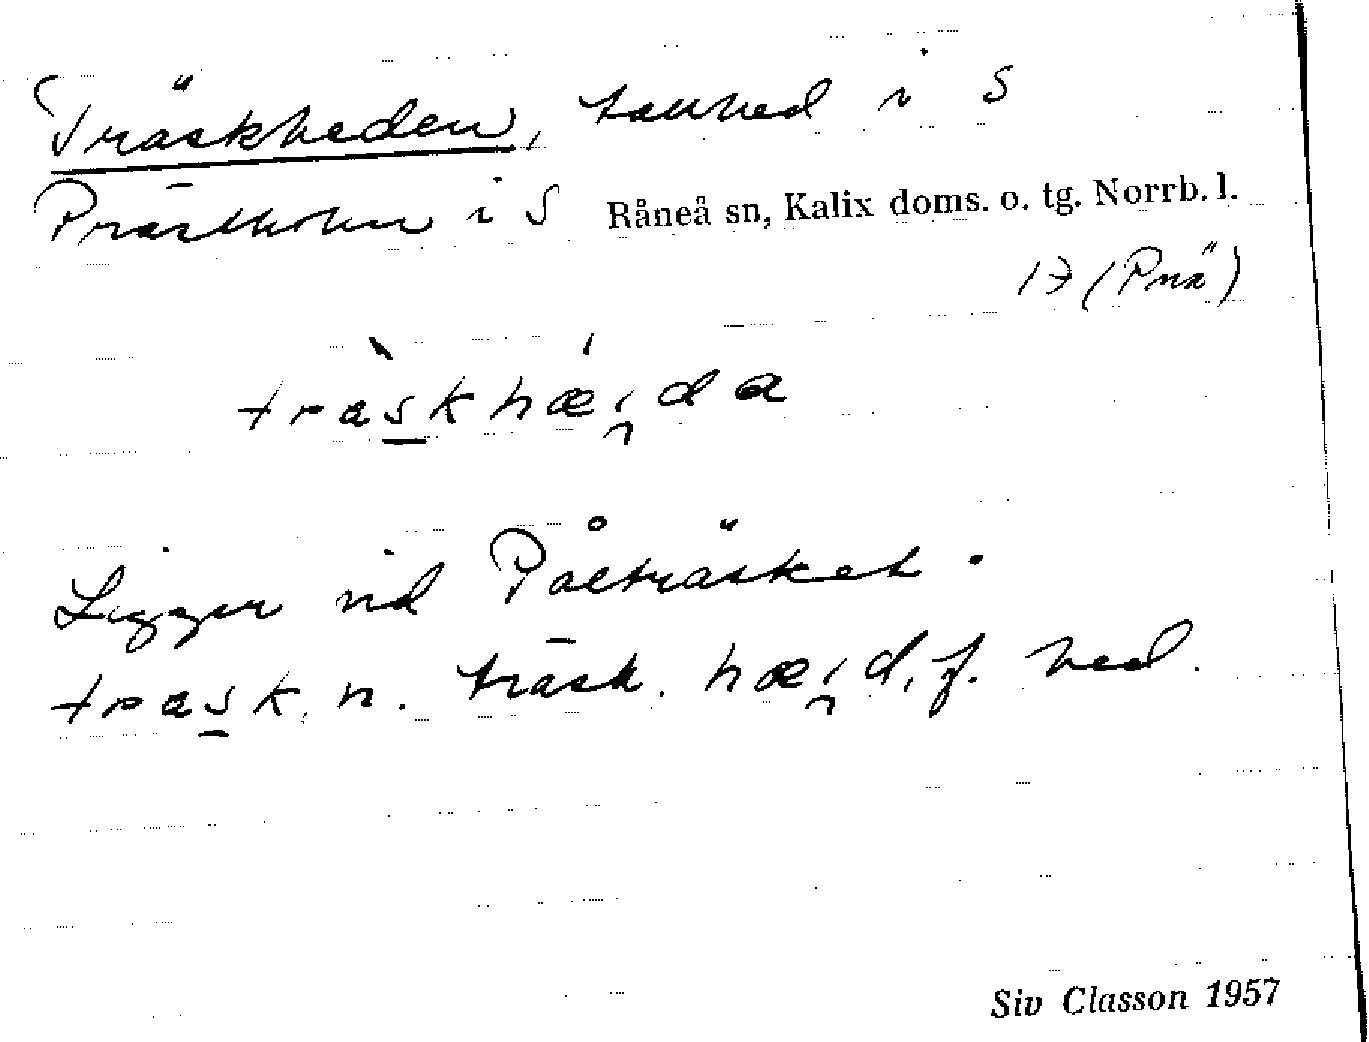 Träskheden, tallhed i S
Prästholm i S Råneå sn, Kalix doms. o. tg. Norrb. l.
17 (Pnä)
tràskhǽi̯da
Ligger vid Påtträsket.
trask. n. träsk. hæi̯d. f. hed.
Siv Classon 1957